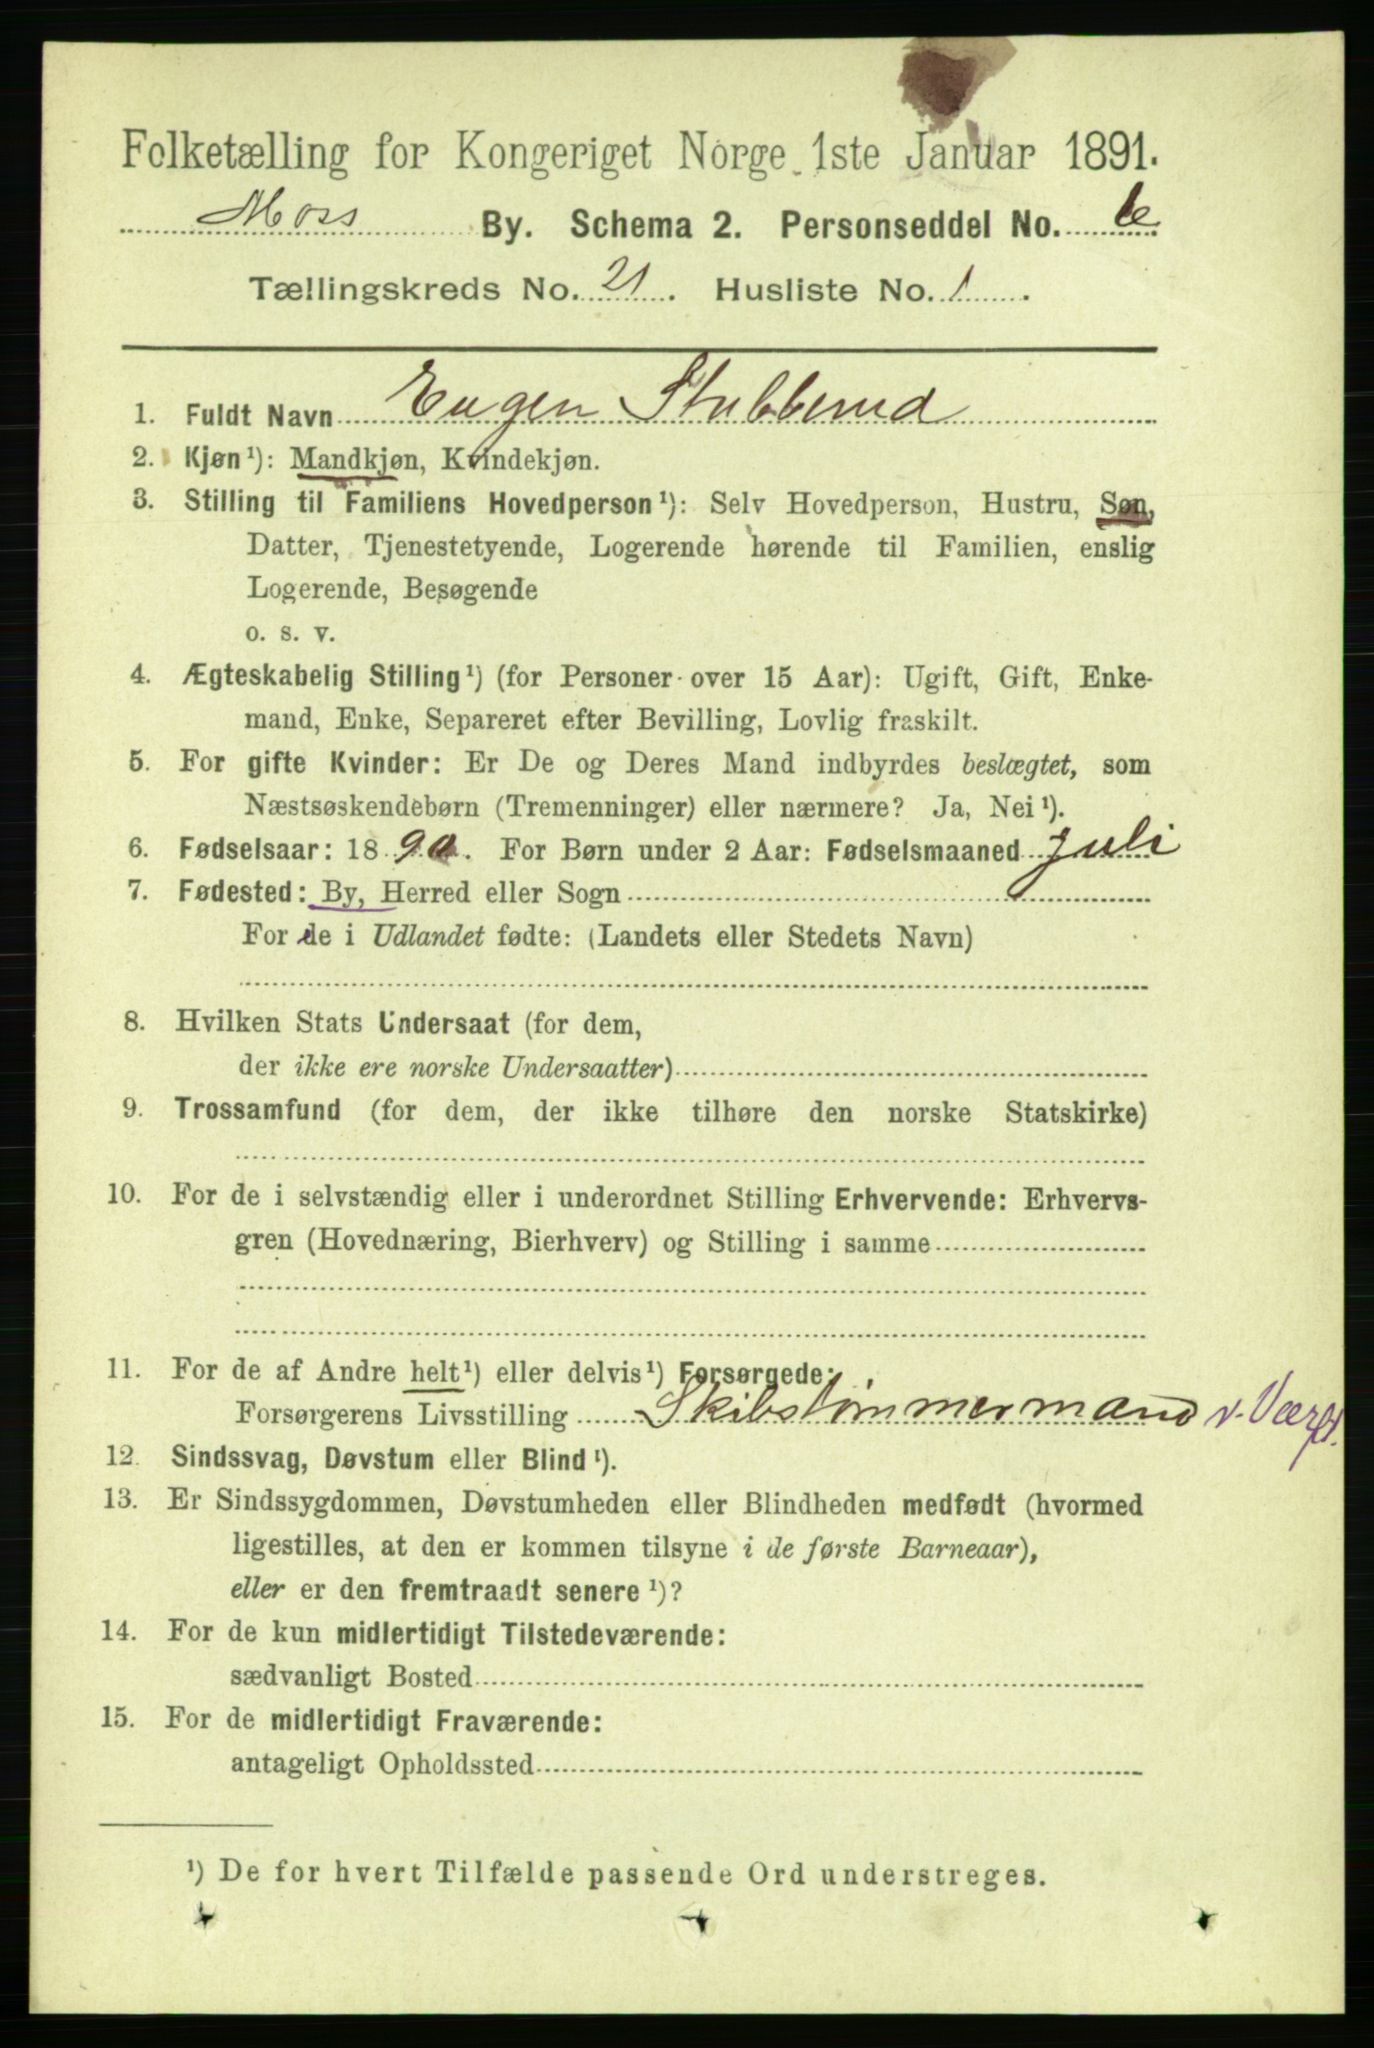 Folketælling for Kongeriget Norge 1ste Januar 1891.
Moss By. Schema 2. Personseddel No. 6
Tællingskreds No. 21. Husliste No. 1.
1. Fuldt Navn Eugen Stubberud
2. Kjøn¹): Mandkjøn, Kvindekjøn.
3. Stilling til Familiens Hovedperson¹): Selv Hovedperson, Hustru, Søn,
Datter, Tjenestetyende, Logerende hørende til Familien, enslig
Logerende, Besøgende
o. s. v.
4. Ægteskabelig Stilling¹) (for Personer over 15 Aar): Ugift, Gift, Enke-
mand, Enke, Separeret efter Bevilling, Lovlig fraskilt.
5. For gifte Kvinder: Er De og Deres Mand indbyrdes beslægtet, som
Næstsøskendebørn (Tremenninger) eller nærmere? Ja, Nei¹).
6. Fødselsaar: 1890. For Børn under 2 Aar: Fødselsmaaned Juli
7. Fødested: By, Herred eller Sogn
For de i Udlandet fødte: (Landets eller Stedets Navn)
8. Hvilken Stats Undersaat (for dem,
der ikke ere norske Undersaatter)
9. Trossamfund (for dem, der ikke tilhøre den norske Statskirke)
10. For de i selvstændig eller i underordnet Stilling Erhvervende: Erhvervs-
gren (Hovednæring, Bierhverv) og Stilling i samme
11. For de af Andre helt¹) eller delvis¹) Forsørgede:
Forsørgerens Livsstilling Skibstømmermand v. Værft.
12. Sindssvag, Døvstum eller Blind¹).
13. Er Sindssygdommen, Døvstumheden eller Blindheden medfødt (hvormed
ligestilles, at den er kommen tilsyne i de første Barneaar),
eller er den fremtraadt senere¹)?
14. For de kun midlertidigt Tilstedeværende:
sædvanligt Bosted
15. For de midlertidigt Fraværende:
antageligt Opholdssted
¹) De for hvert Tilfælde passende Ord understreges.